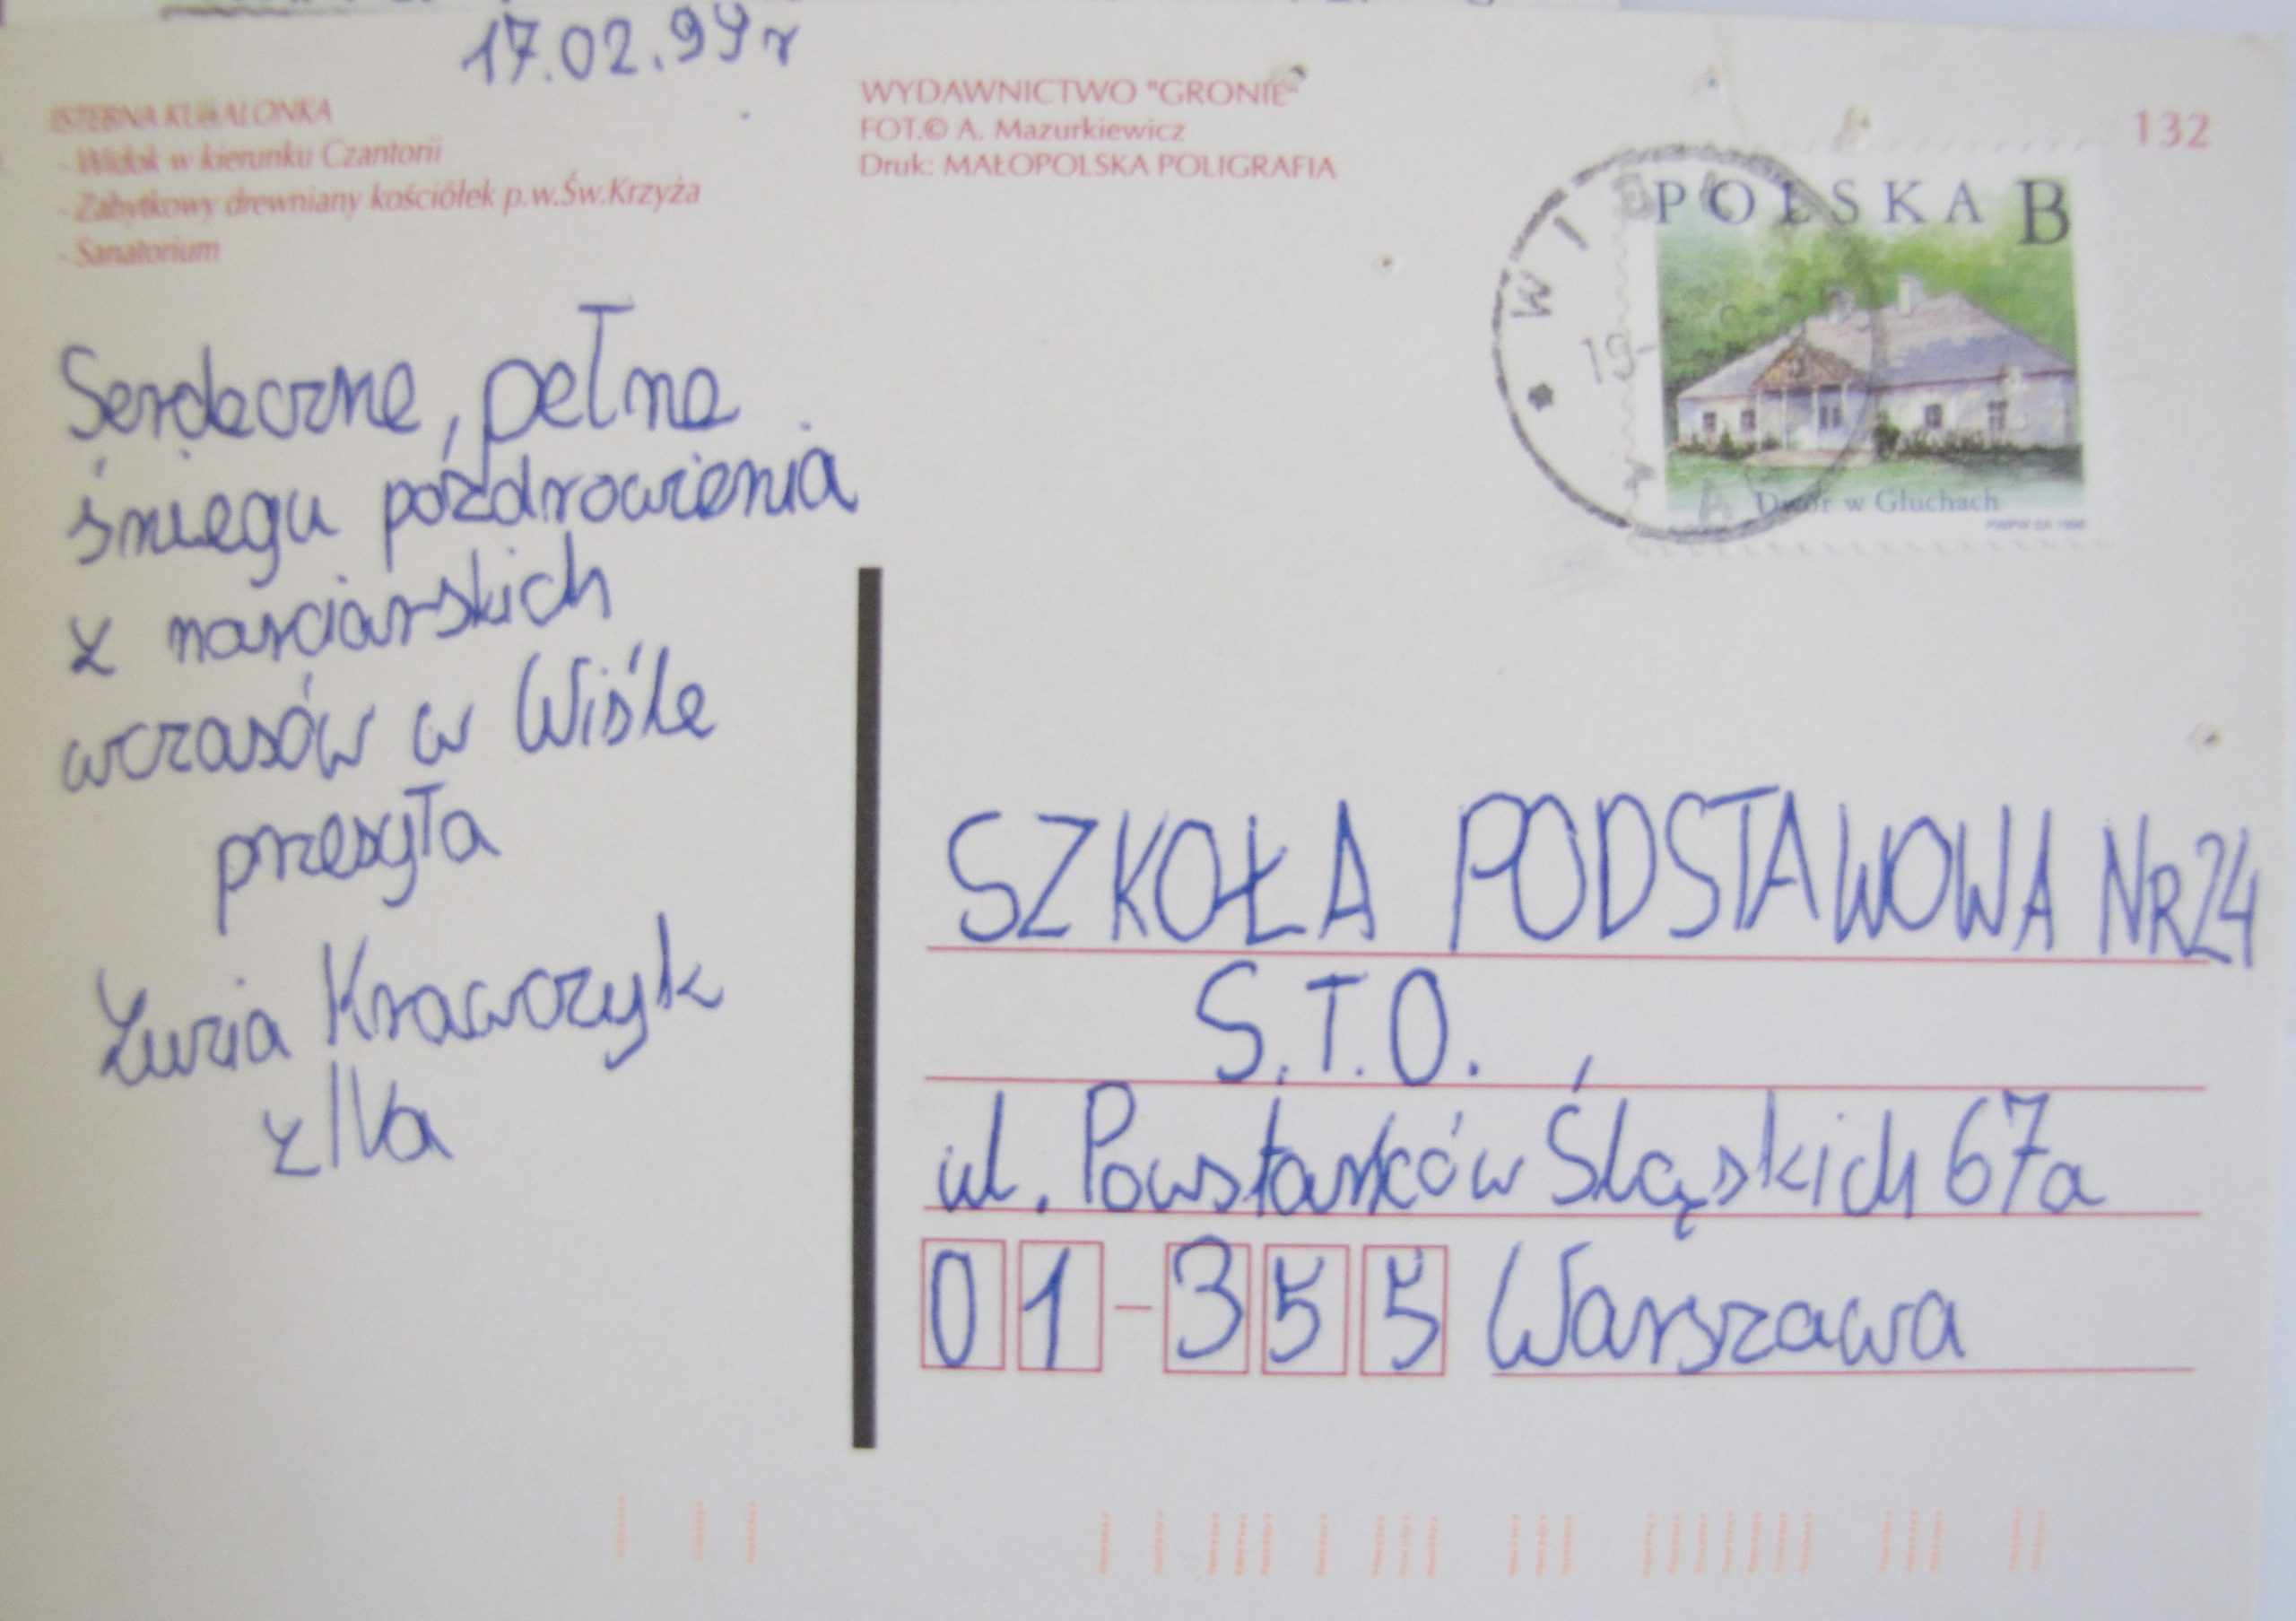 17.02.99r
ISTEBNA KUBALONKA
- Widok w kierunku Czantorii
- Zabytkowy drewniany kościółek p.w.Św.Krzyża
- Sanatorium
WYDAWNICTWO "GRONIE"
FOT.© A. Mazurkiewicz
Druk: MAŁOPOLSKA POLIGRAFIA
132
POLSKA B
Dwór w Głuchach
PWPW SA 1998
19-
Serdeczne, pełne
śniegu pozdrowienia
z narciarskich
wczasów w Wiśle
przesyła
Zuzia Krawczyk
z IVa
SZKOŁA PODSTAWOWA NR 24
S.T.O.,
ul. Powstańców Śląskich 67a
01-355 Warszawa